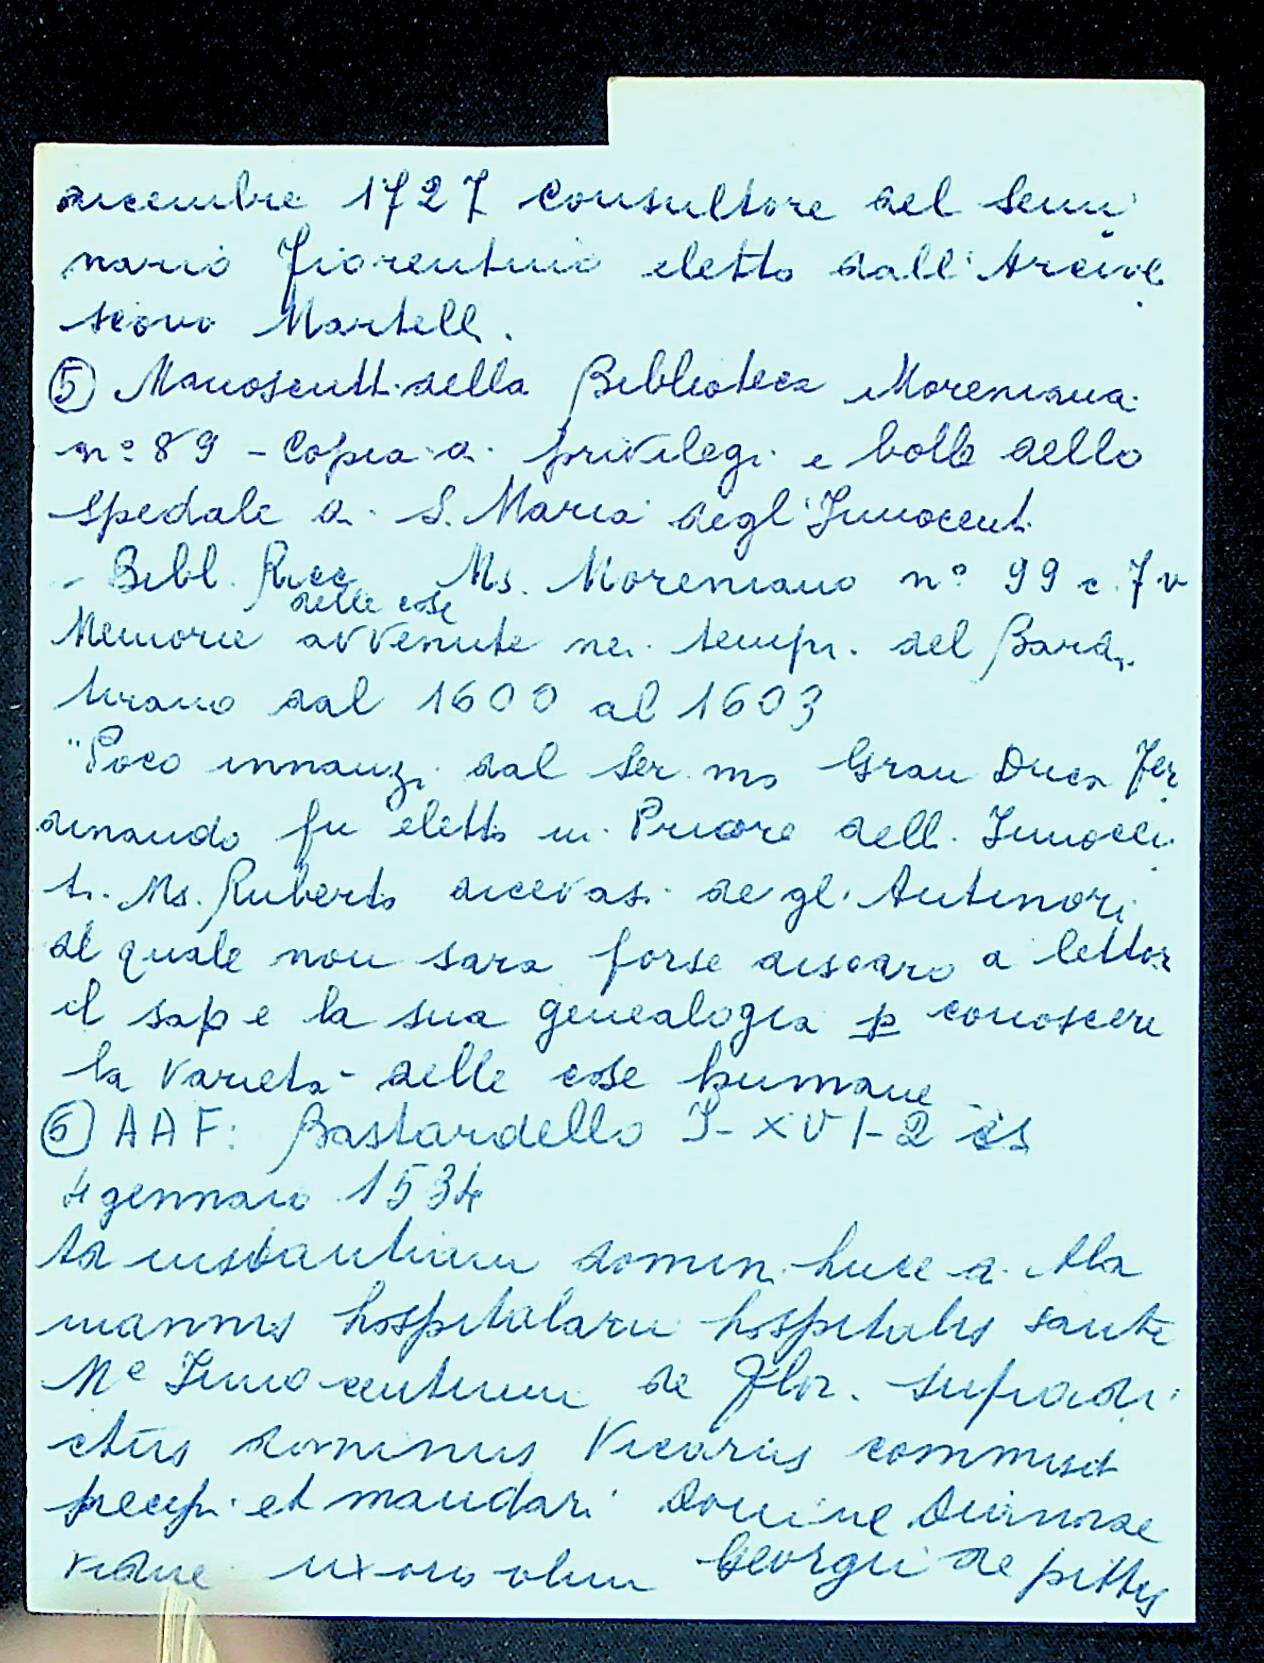 dicembre 1727 Consultore del Semi
nario Fiorentino eletto dall'Arcive
scovo Martelli.
⑤ Manoscritti della Biblioteca Moreniana
n° 89 - Copia di privilegi e bolle dello
spedale di S. Maria degl'Innocenti
- Bibl. Ricc Ms. Moreniano n° 99 c. 7v
delle cose
Memorie avvenute nei tempi del Bard.
tirano dal 1600 al 1603
"Poco innanzi dal Ser. mo Gran Duca Fer
dinando fu eletto in Priore dell. Innocen
ti. Ms. Ruberto dicevasi degli Antinori
al quale non sara forse discaro a lettori
il sape la sua genealogia p conoscere
la varietà delle cose humane
⑥ AAF: Bastardello I-XVI-2 cs
4 gennaio 1534
Ad instantiam domini Luce di Ala
mannis hospitalarii hospitalis sante
Me Innocentium de Flor. supradi
ctus dominus Vicarius commisit
precipi et mandari Domine
vidue uxoris olim Georgii de pittis